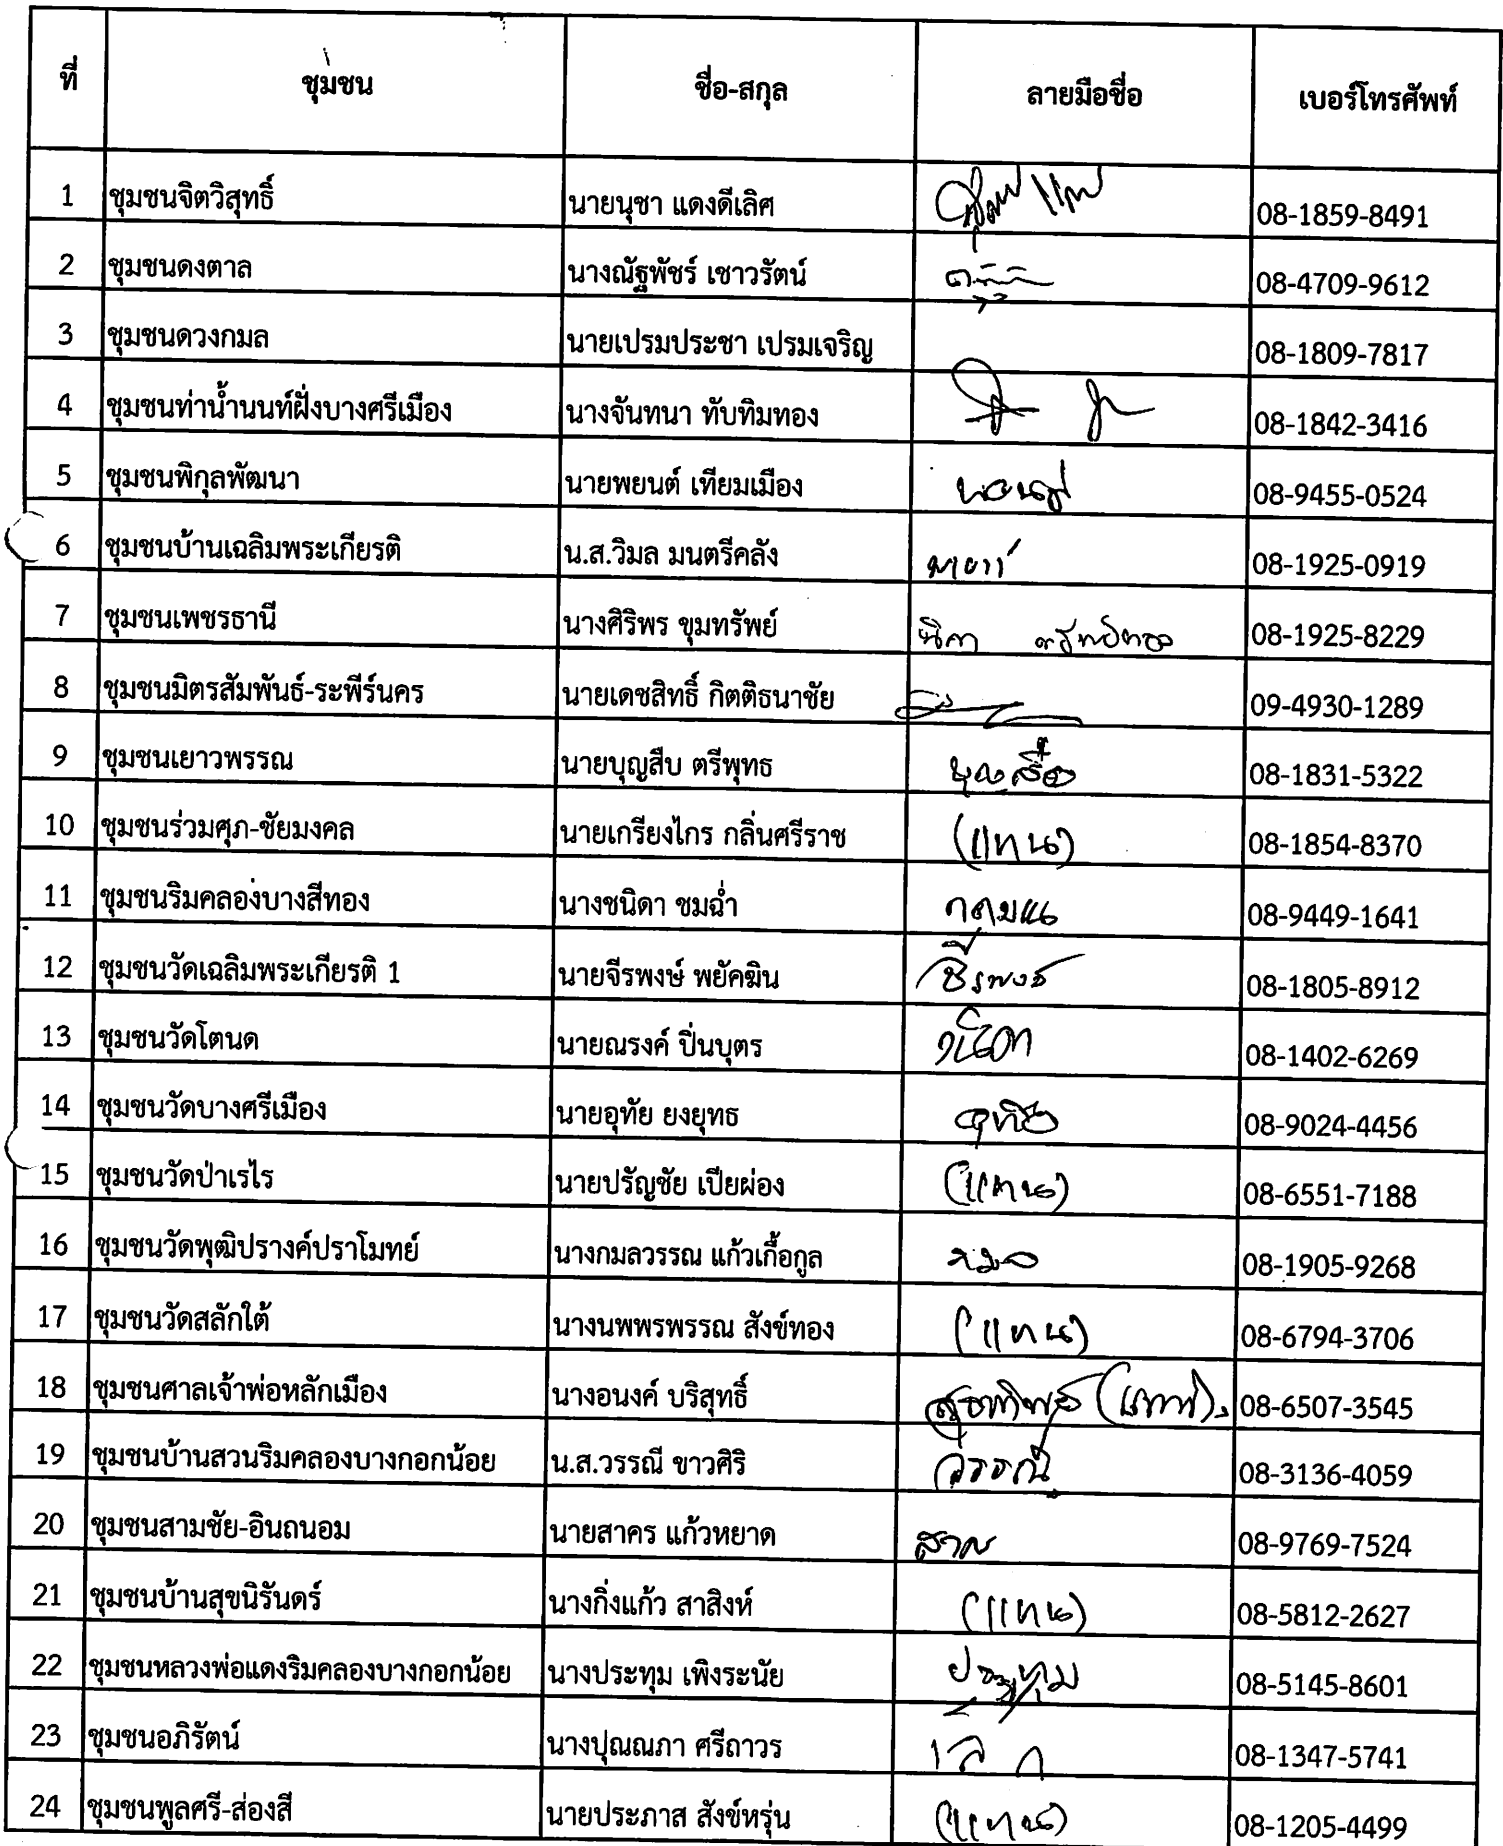 ที่ ชุมชน ชื่อ-สกุล ลายมือชื่อ เบอร์โทรศัพท์
1 ชุมชนจิตวิสุทธิ์ นายนุชา แดงดีเลิศ 08-1859-8491
2 ชุมชนดงตาล นางณัฐพัชร์ เชาวรัตน์ 08-4709-9612
3 ชุมชนดวงกมล นายเปรมประชา เปรมเจริญ 08-1809-7817
4 ชุมชนท่าน้ำนนท์ฝั่งบางศรีเมือง นางจันทนา ทับทิมทอง 08-1842-3416
5 ชุมชนพิกุลพัฒนา นายพยนต์ เทียมเมือง พยนต์ 08-9455-0524
6 ชุมชนบ้านเฉลิมพระเกียรติ น.ส.วิมล มนตรีคลัง 08-1925-0919
7 ชุมชนเพชรธานี นางศิริพร ขุมทรัพย์ 08-1925-8229
8 ชุมชนมิตรสัมพันธ์-ระพีร์นคร นายเดชสิทธิ์ กิตติธนาชัย 09-4930-1289
9 ชุมชนเยาวพรรณ นายบุญสืบ ตรีพุทธ 08-1831-5322
10 ชุมชนร่วมศุภ-ชัยมงคล นายเกรียงไกร กลิ่นศรีราช (แทน) 08-1854-8370
11 ชุมชนริมคลองบางสีทอง นางชนิดา ชมฉ่ำ 08-9449-1641
12 ชุมชนวัดเฉลิมพระเกียรติ 1 นายจีรพงษ์ พยัคฆิน 08-1805-8912
13 ชุมชนวัดโตนด นายณรงค์ ปิ่นบุตร 08-1402-6269
14 ชุมชนวัดบางศรีเมือง นายอุทัย ยงยุทธ อุทัย 08-9024-4456
15 ชุมชนวัดป่าเรไร นายปรัญชัย เปียผ่อง (แทน) 08-6551-7188
16 ชุมชนวัดพุฒิปรางค์ปราโมทย์ นางกมลวรรณ แก้วเกื้อกูล 08-1905-9268
17 ชุมชนวัดสลักใต้ นางนพพรพรรณ สังข์ทอง (แทน) 08-6794-3706
18 ชุมชนศาลเจ้าพ่อหลักเมือง นางอนงค์ บริสุทธิ์ (แทน) 08-6507-3545
19 ชุมชนบ้านสวนริมคลองบางกอกน้อย น.ส.วรรณี ขาวศิริ วรรณี 08-3136-4059
20 ชุมชนสามชัย-อินถนอม นายสาคร แก้วหยาด 08-9769-7524
21 ชุมชนบ้านสุขนิรันดร์ นางกิ่งแก้ว สาสิงห์ (แทน) 08-5812-2627
22 ชุมชนหลวงพ่อแดงริมคลองบางกอกน้อย นางประทุม เพิงระนัย ประทุม 08-5145-8601
23 ชุมชนอภิรัตน์ นางปุณณภา ศรีถาวร 08-1347-5741
24 ชุมชนพูลศรี-ส่องสี นายประภาส สังข์หรุ่น (แทน) 08-1205-4499